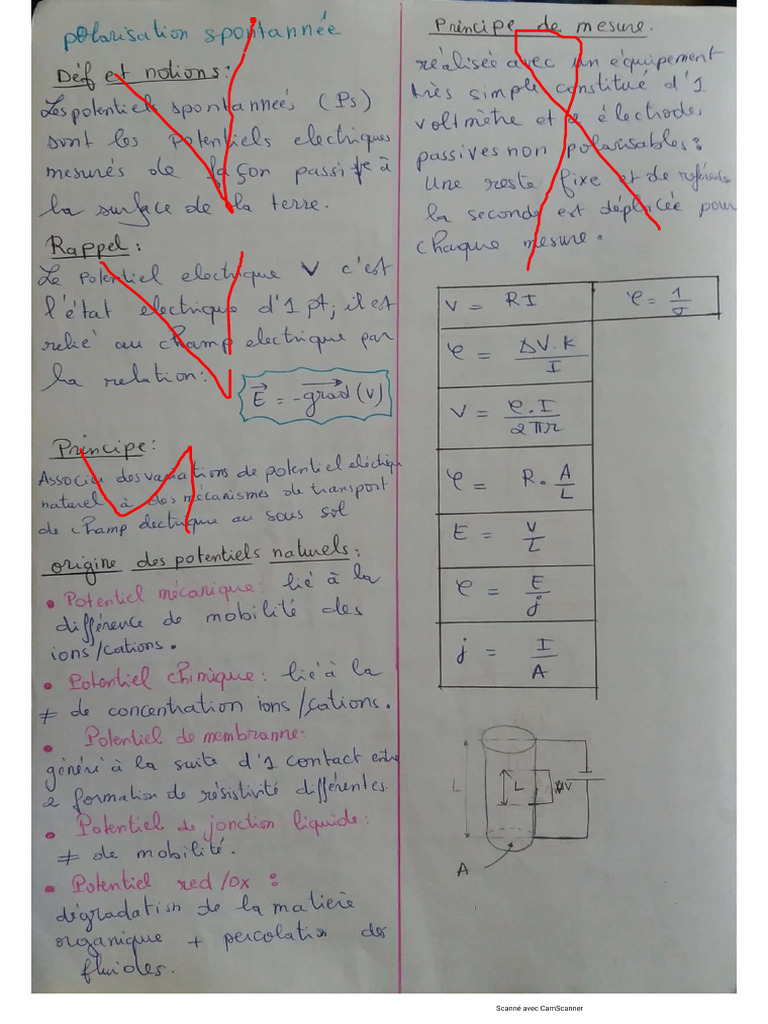 polarisation spontannée
Déf et notions:
Les potentiels spontanneés (Ps)
sont les Potentiels electriques
mesurés de façon passive à
la surface de la terre.
Rappel:
Le potentiel electrique V c'est
l'état electrique d'1 pt, il est
relié au champ electrique par
la relation:
E = -grad(V)
Principe:
Associer des variations de potentiel eléctrique
naturel à des mécanismes de transport
de champ electrique au sous sol
origine des potentiels naturels:
• Potentiel mécanique: lié à la
différence de mobilité des
ions/cations.
• Potentiel chimique: lié à la
≠ de concentration ions/cations.
• Potentiel de membranne:
généré à la suite d'1 contact entre
2 formation de résistivité différentes.
• Potentiel de jonction liquide:
≠ de mobilité.
• Potentiel red/ox:
dégradation de la matière
organique + percolation des
fluides.
Principe de mesure.
réalisée avec un équipement
très simple constitué d'1
voltmètre et 2 électrodes
passives non polarisables:
Une reste fixe et de référence
la seconde est déplacée pour
chaque mesure.
V = RI
ρ = 1/σ
ρ = ΔV.K/I
V = ρ.I/2πr
ρ = R.A/L
E = V/L
ρ = E/j
j = I/A
L
L
V
A
Scanné avec CamScanner